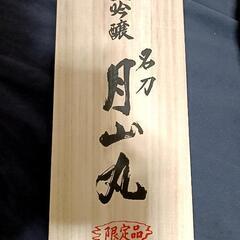 吟醸
名刀
月山丸
限定品